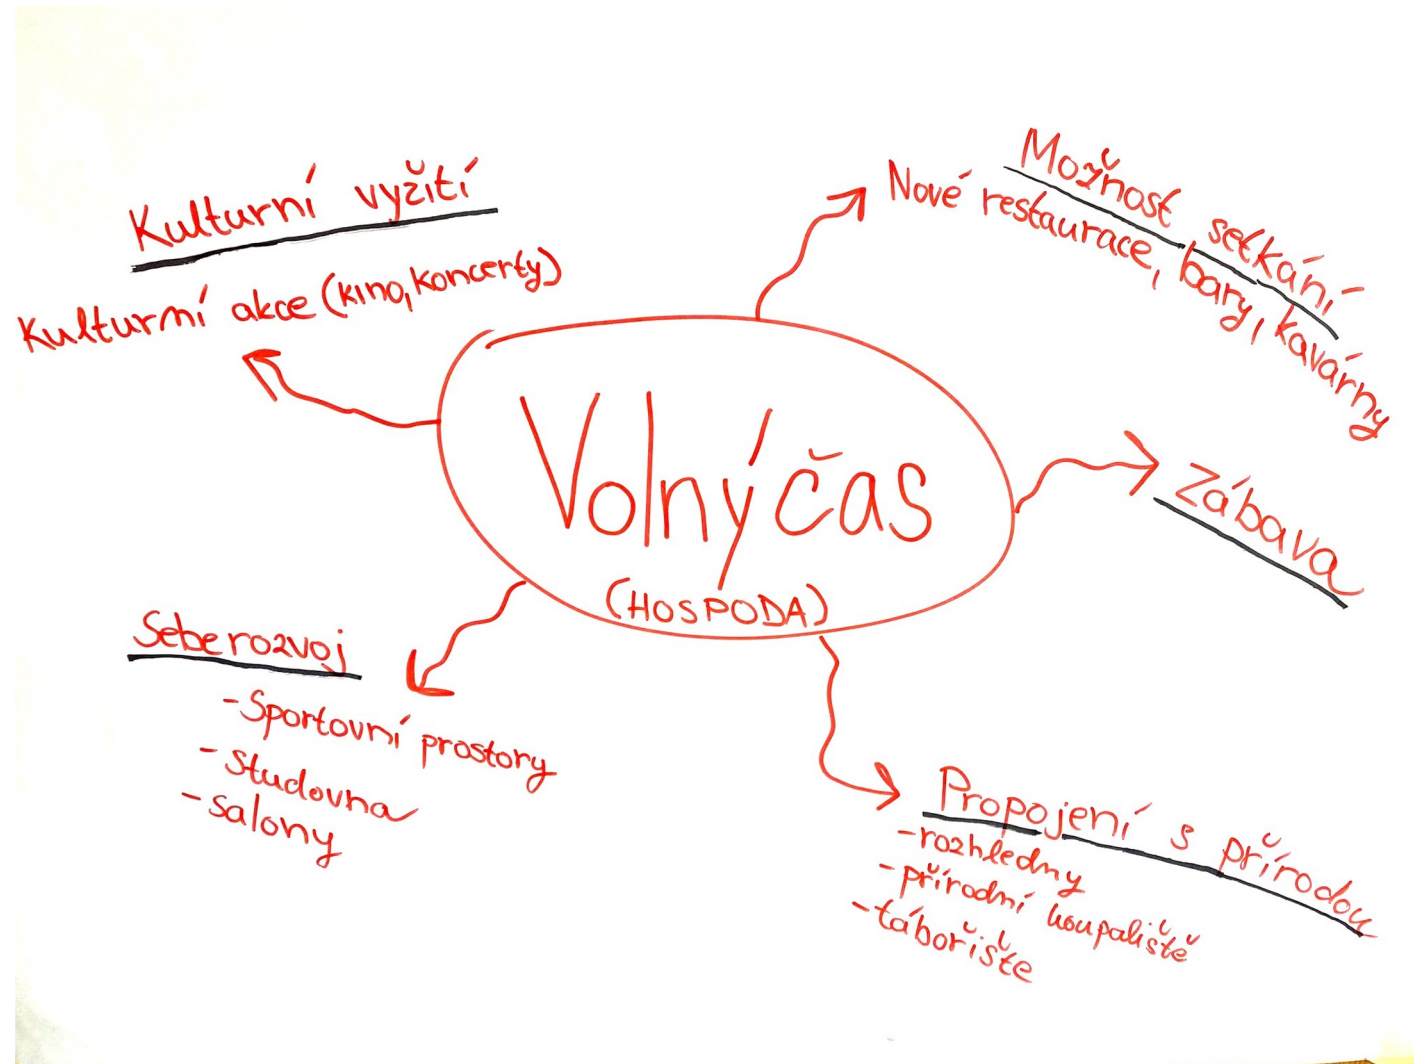 Kulturní vyžití
Kulturní akce (kino, koncerty)
Možnost setkání
Nové restaurace, bary, kavárny
Volný čas
(HOSPODA)
Zábava
Seberozvoj
- Sportovní prostory
- studovna
- salony
Propojení s přírodou
- rozhledny
- přírodní koupaliště
- tábořište